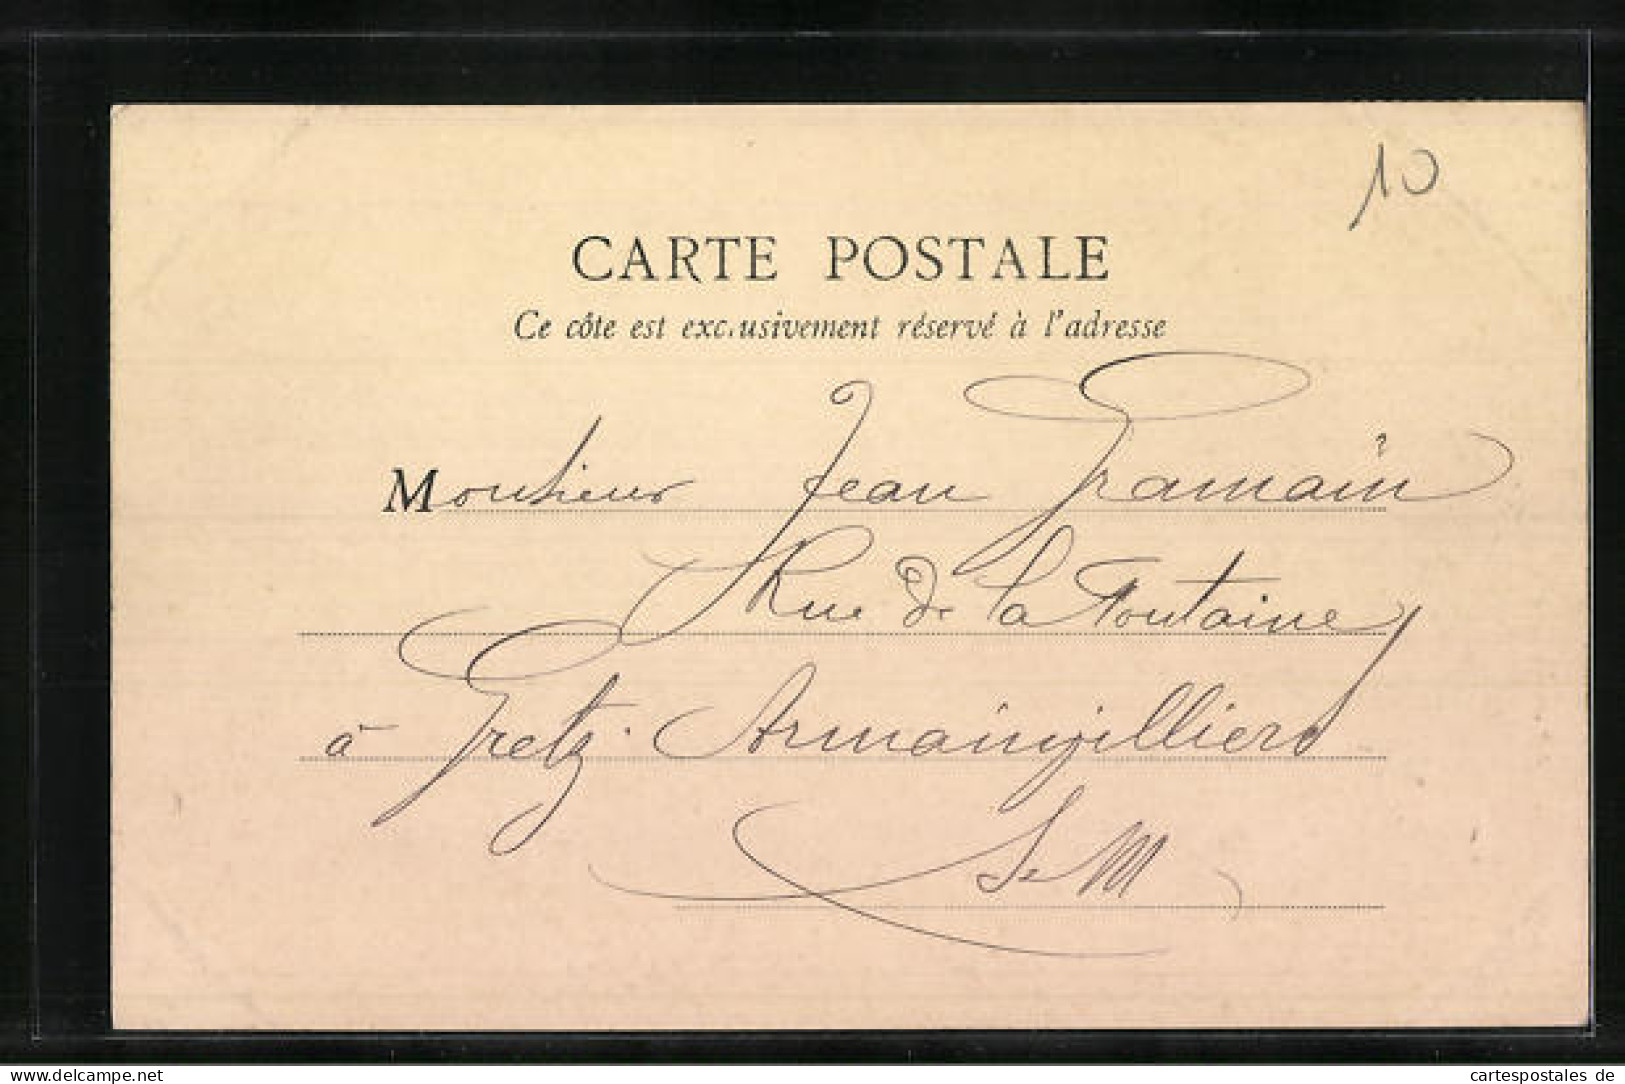 10
CARTE POSTALE
Ce côte est exclusivement réservé à l'adresse
Monsieur Jean Gramain
Rue de la Fontaine
à Gretz-Armainvilliers
S-et-M
delcampe.net
cartespostales de